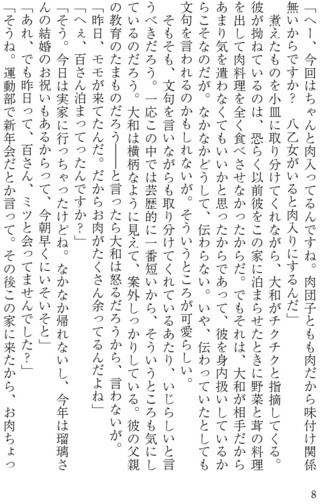 「へー、今回はちゃんと肉入ってるんですね。肉団子ともも肉だから味付け関係
無いからですか？　八乙女がいると肉入りにするんだ」
　煮えたものを小皿に取り分けてくれながら、大和がチクチクと指摘してくる。
彼が拗ねているのは、恐らく以前彼をこの家に泊まらせたときに野菜と茸の料理
を出して肉料理を全く食べさせなかったからだ。でもそれは、大和が相手だから
あまり気を遣わなくてもいいかと思ったからであって、彼を身内扱いしているか
らこそなのだが。なかなかどうして、伝わらない。いや、伝わっていたとしても
文句を言われるのかもしれないが。そういうところが可愛らしい。
　そもそも、文句を言いながらも取り分けてくれているあたり、いじらしいと言
うべきだろう。一応この中では芸歴的に一番短いから、そういうところも気にし
ているのだろう。大和は横柄なように見えて、案外しっかりしている。彼の父親
の教育のたまものだろう―と言ったら大和は怒るだろうから、言わないが。
「昨日、モモが来てたんだ。だからお肉がたくさん余ってるんだよね」
「へぇ、百さん泊まってったんですか？」
「そう。今日は実家に行っちゃったけどね。なかなか帰れないし、今年は瑠璃さ
んの結婚のお祝いもあるからって、今朝早くにいそいそと」
「あれ、でも昨日って、百さん、ミツと会ってませんでした？」
「そうね。運動部で新年会だとか言って。その後この家に来たから、お肉ちょっ
8